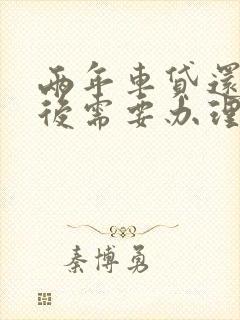 兩年車貸還
後需要办理
秦博勇